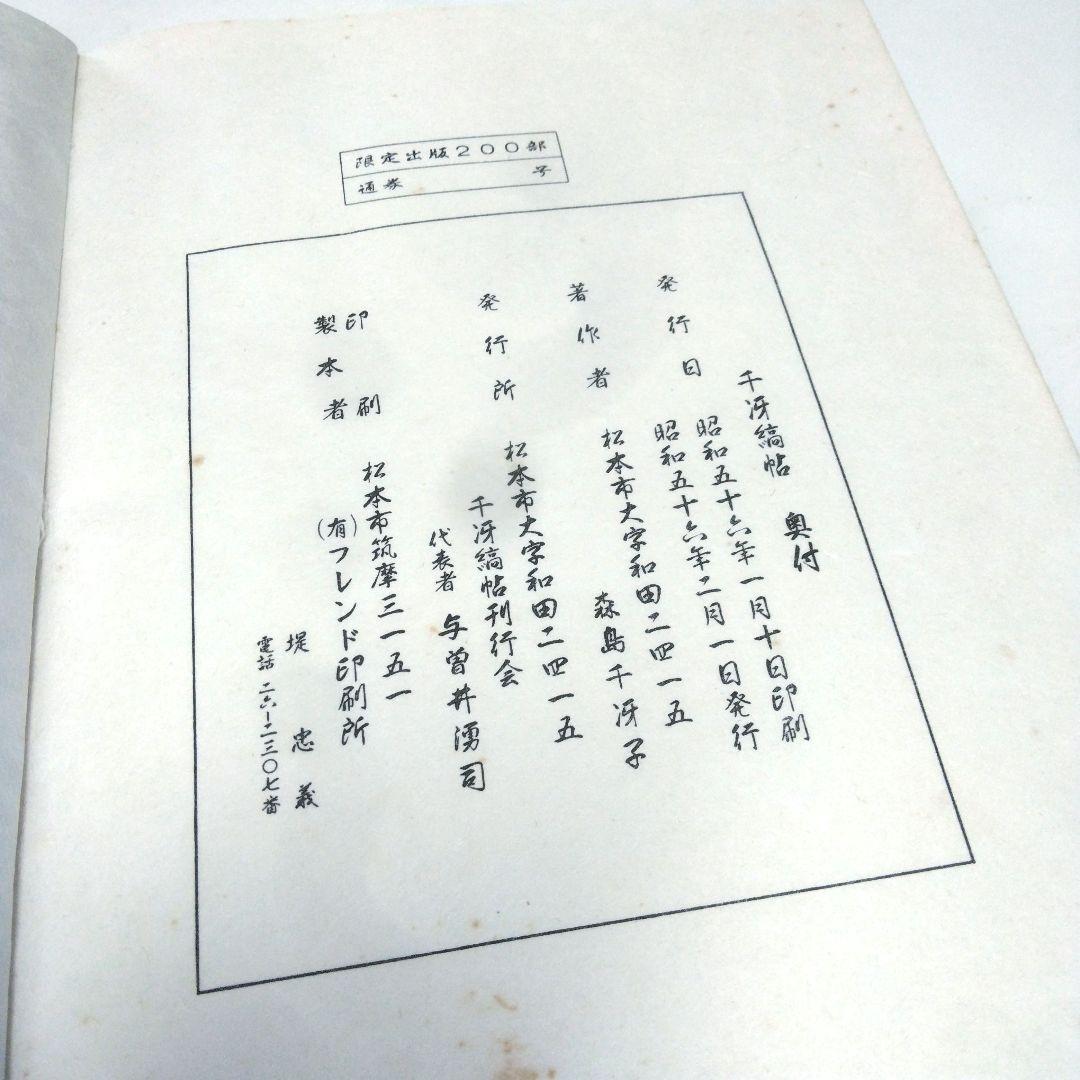 限定出版200部
通券 号
千冴縞帖 奥付
発行日 昭和五十六年一月十日印刷
昭和五十六年二月一日発行
著作者 松本市大字和田二四一五
森島千冴子
発行所 松本市大字和田二四一五
千冴縞帖刊行会
代表者 与曽井湧司
印刷 松本市筑摩三一五一
製本者 (有)フレンド印刷所
堤忠義
電話 二六-二三〇七番